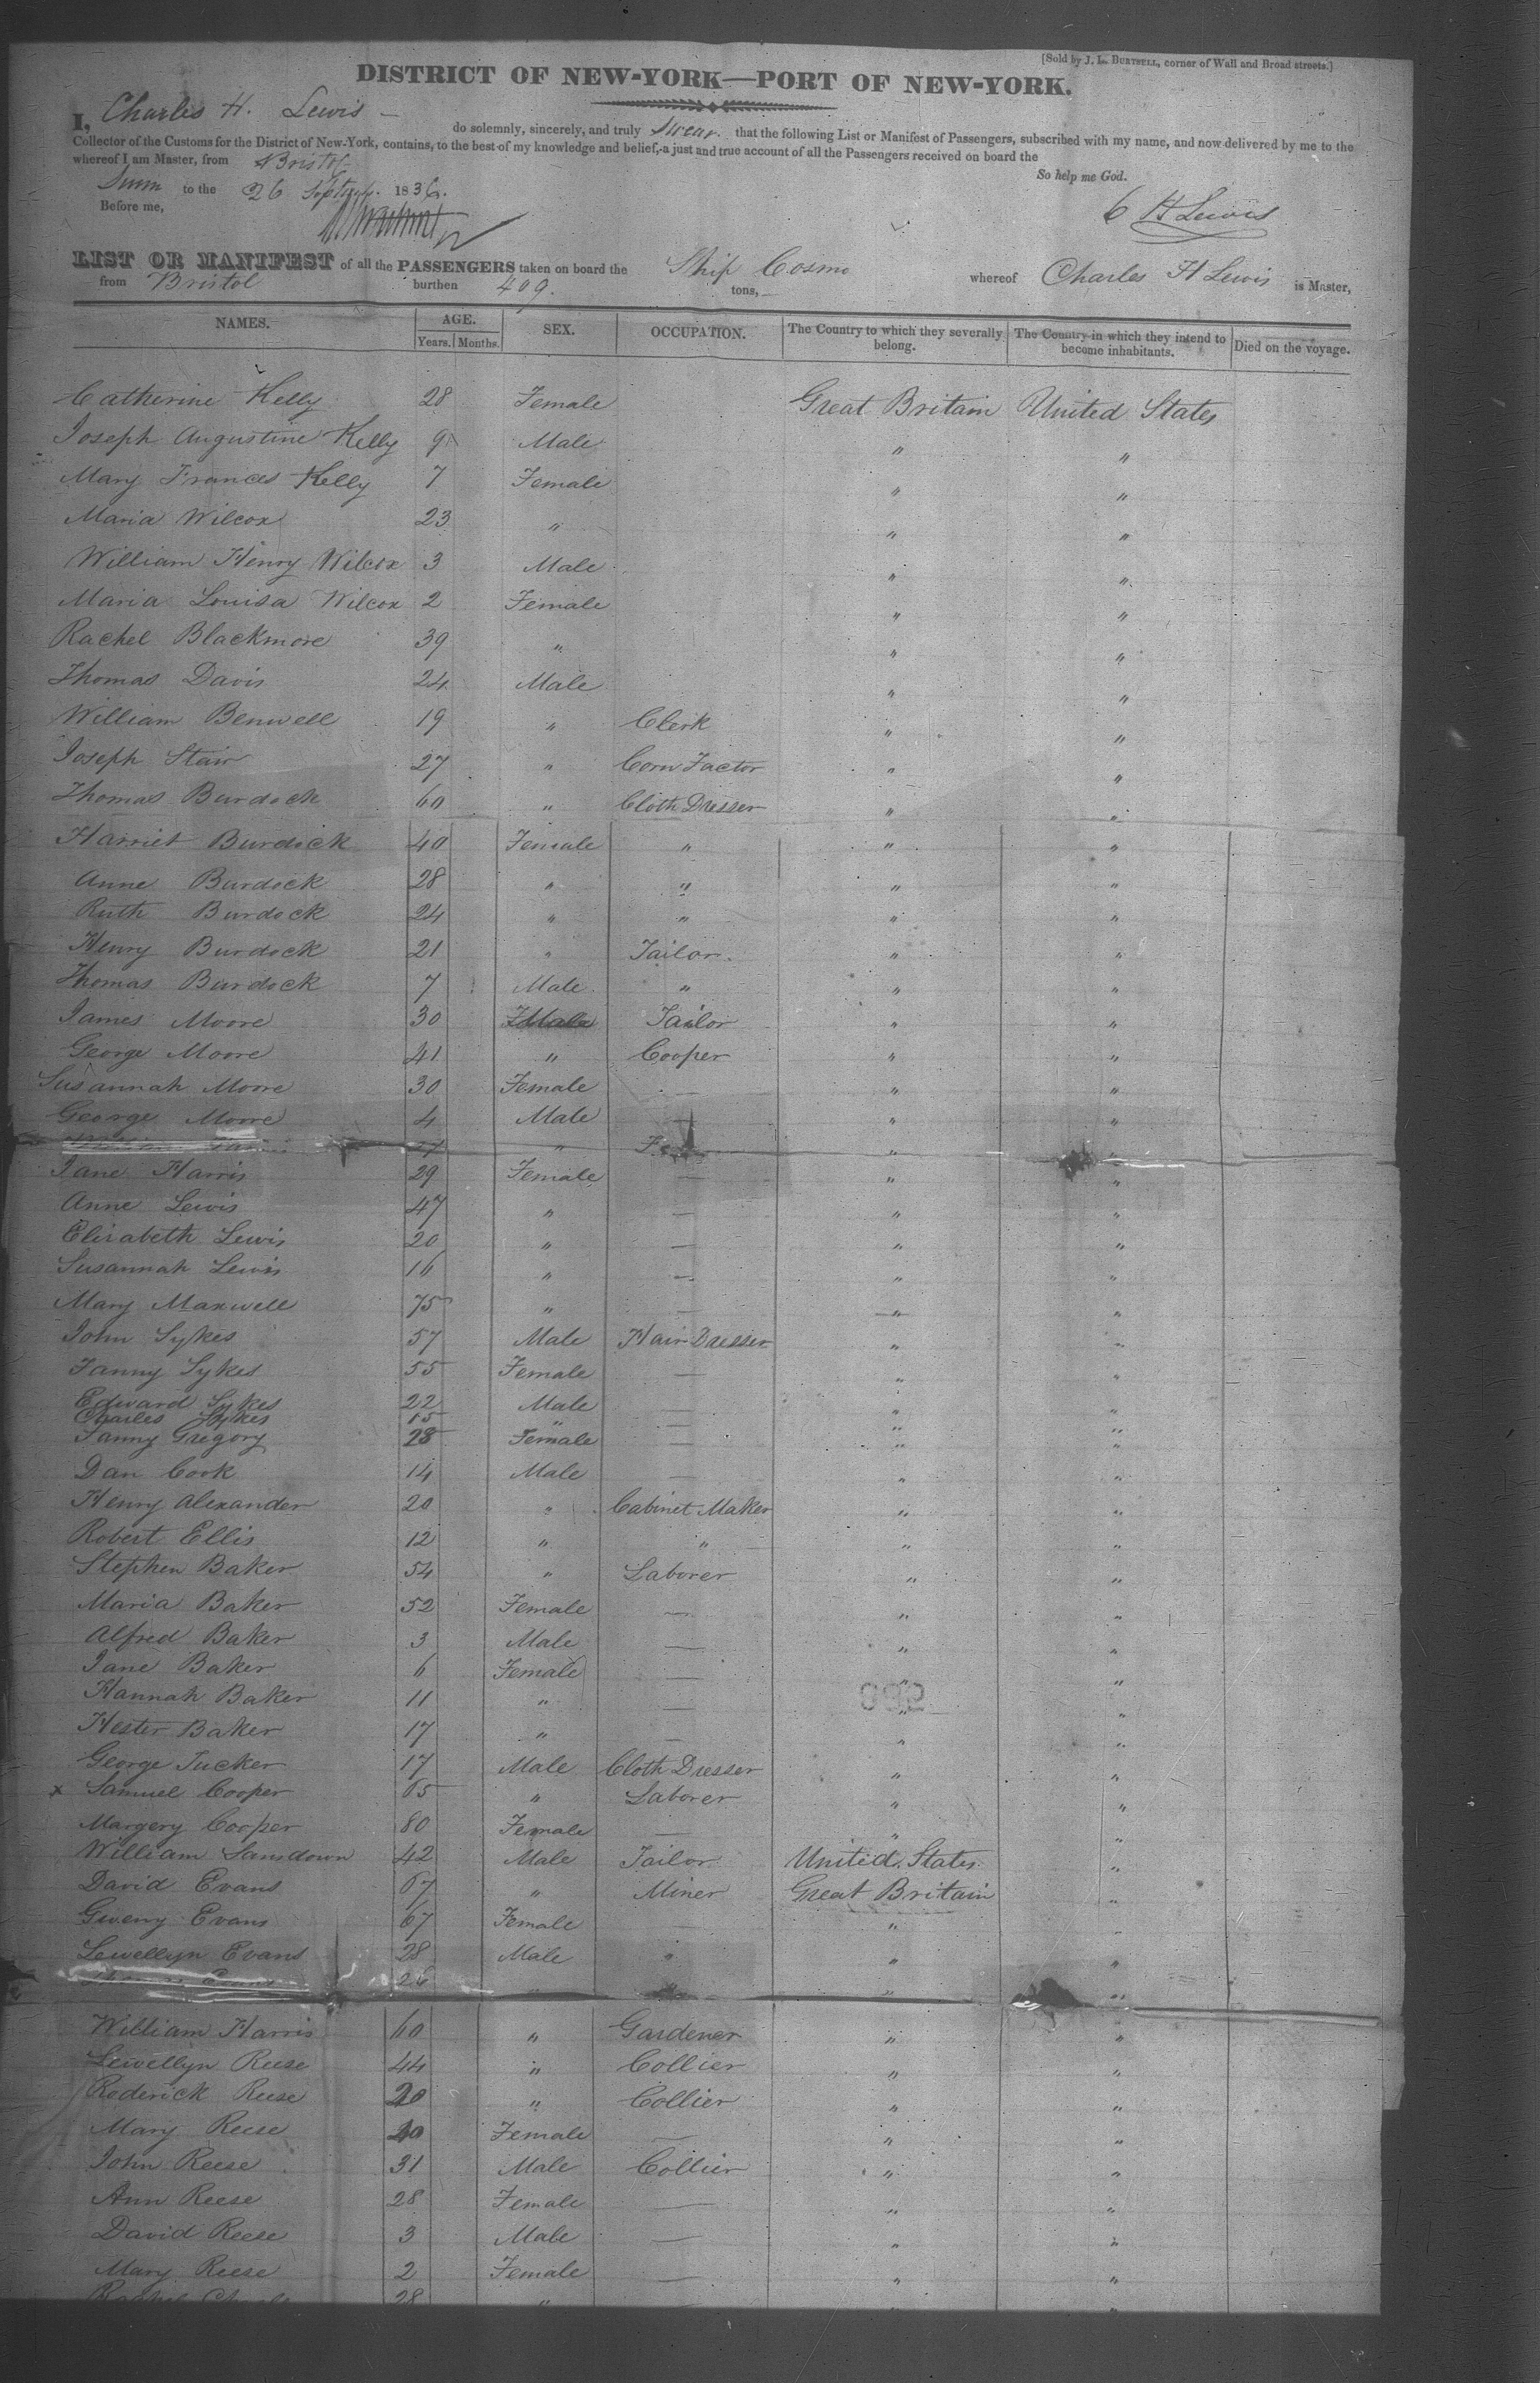 [Sold by J. L. BURTSELL, corner of Wall and Broad streets.]
DISTRICT OF NEW-YORK—PORT OF NEW-YORK.
I, Charles H. Lewis – do solemnly, sincerely, and truly Swear that the following List or Manifest of Passengers, subscribed with my name, and now delivered by me to the
Collector of the Customs for the District of New-York, contains, to the best of my knowledge and belief, a just and true account of all the Passengers received on board the
whereof I am Master, from Bristol
So help me God.
to the 26 1836.
Before me,
C H Lewis
LIST OR MANIFEST of all the PASSENGERS taken on board the Ship Cosmo whereof Charles H Lewis is Master,
from Bristol burthen 409. tons,
NAMES. AGE. SEX. OCCUPATION. The Country to which they severally belong. The Country in which they intend to become inhabitants. Died on the voyage.
Years. Months.
Catherine Kelly 28 Female Great Britain United States
Joseph Augustine Kelly 9 Male " "
Mary Frances Kelly 7 Female " "
Maria Wilcox 23 " " "
William Henry Wilcox 3 Male " "
Maria Louisa Wilcox 2 Female " "
Rachel Blackmore 39 " " "
Thomas Davis 24 Male " "
William Benwell 19 " Clerk " "
Joseph Stair 27 " Corn Factor " "
Thomas Burdock 60 " Cloth Dresser " "
Harriet Burdock 40 Female " " "
Anne Burdock 28 " " " "
Ruth Burdock 24 " " " "
Henry Burdock 21 " Tailor. " "
Thomas Burdock 7 Male " " "
James Moore 30 Male Tailor " "
George Moore 41 " Cooper " "
Susannah Moore 30 Female — " "
George Moore 4 Male — " "
27 " " "
Jane Harris 29 Female — " "
Anne Lewis 47 " — " "
Elizabeth Lewis 20 " — " "
Susannah Lewis 16 " — " "
Mary Maxwell 75 " — " "
John Sykes 57 Male Hair Dresser " "
Fanny Sykes 55 Female — " "
Edward Sykes 22 Male — " "
Charles Sykes 15 " " "
Fanny Gregory 28 Female — " "
Dan Cook 14 Male — " "
Henry Alexander 20 " Cabinet Maker " "
Robert Ellis 12 " " " "
Stephen Baker 54 " Laborer " "
Maria Baker 52 Female — " "
Alfred Baker 3 Male — " "
Jane Baker 6 Female — " "
Hannah Baker 11 " — " "
Hester Baker 17 " — " "
George Tucker 17 Male Cloth Dresser " "
x Samuel Cooper 65 " Laborer " "
Margery Cooper 80 Female — " "
William Sansdown 42 Male Tailor United States "
David Evans 67 " Miner Great Britain "
Gweny Evans 67 Female — " "
Lewellyn Evans 28 Male " " "
Evans 26 " " "
William Harris 60 " Gardener " "
Lewellyn Reese 44 " Collier " "
Roderick Reese 20 " Collier " "
Mary Reese Female — " "
John Reese 31 Male Collier " "
Ann Reese 28 Female — " "
David Reese 3 Male — " "
Mary Reese 2 Female — " "
28 " — " "